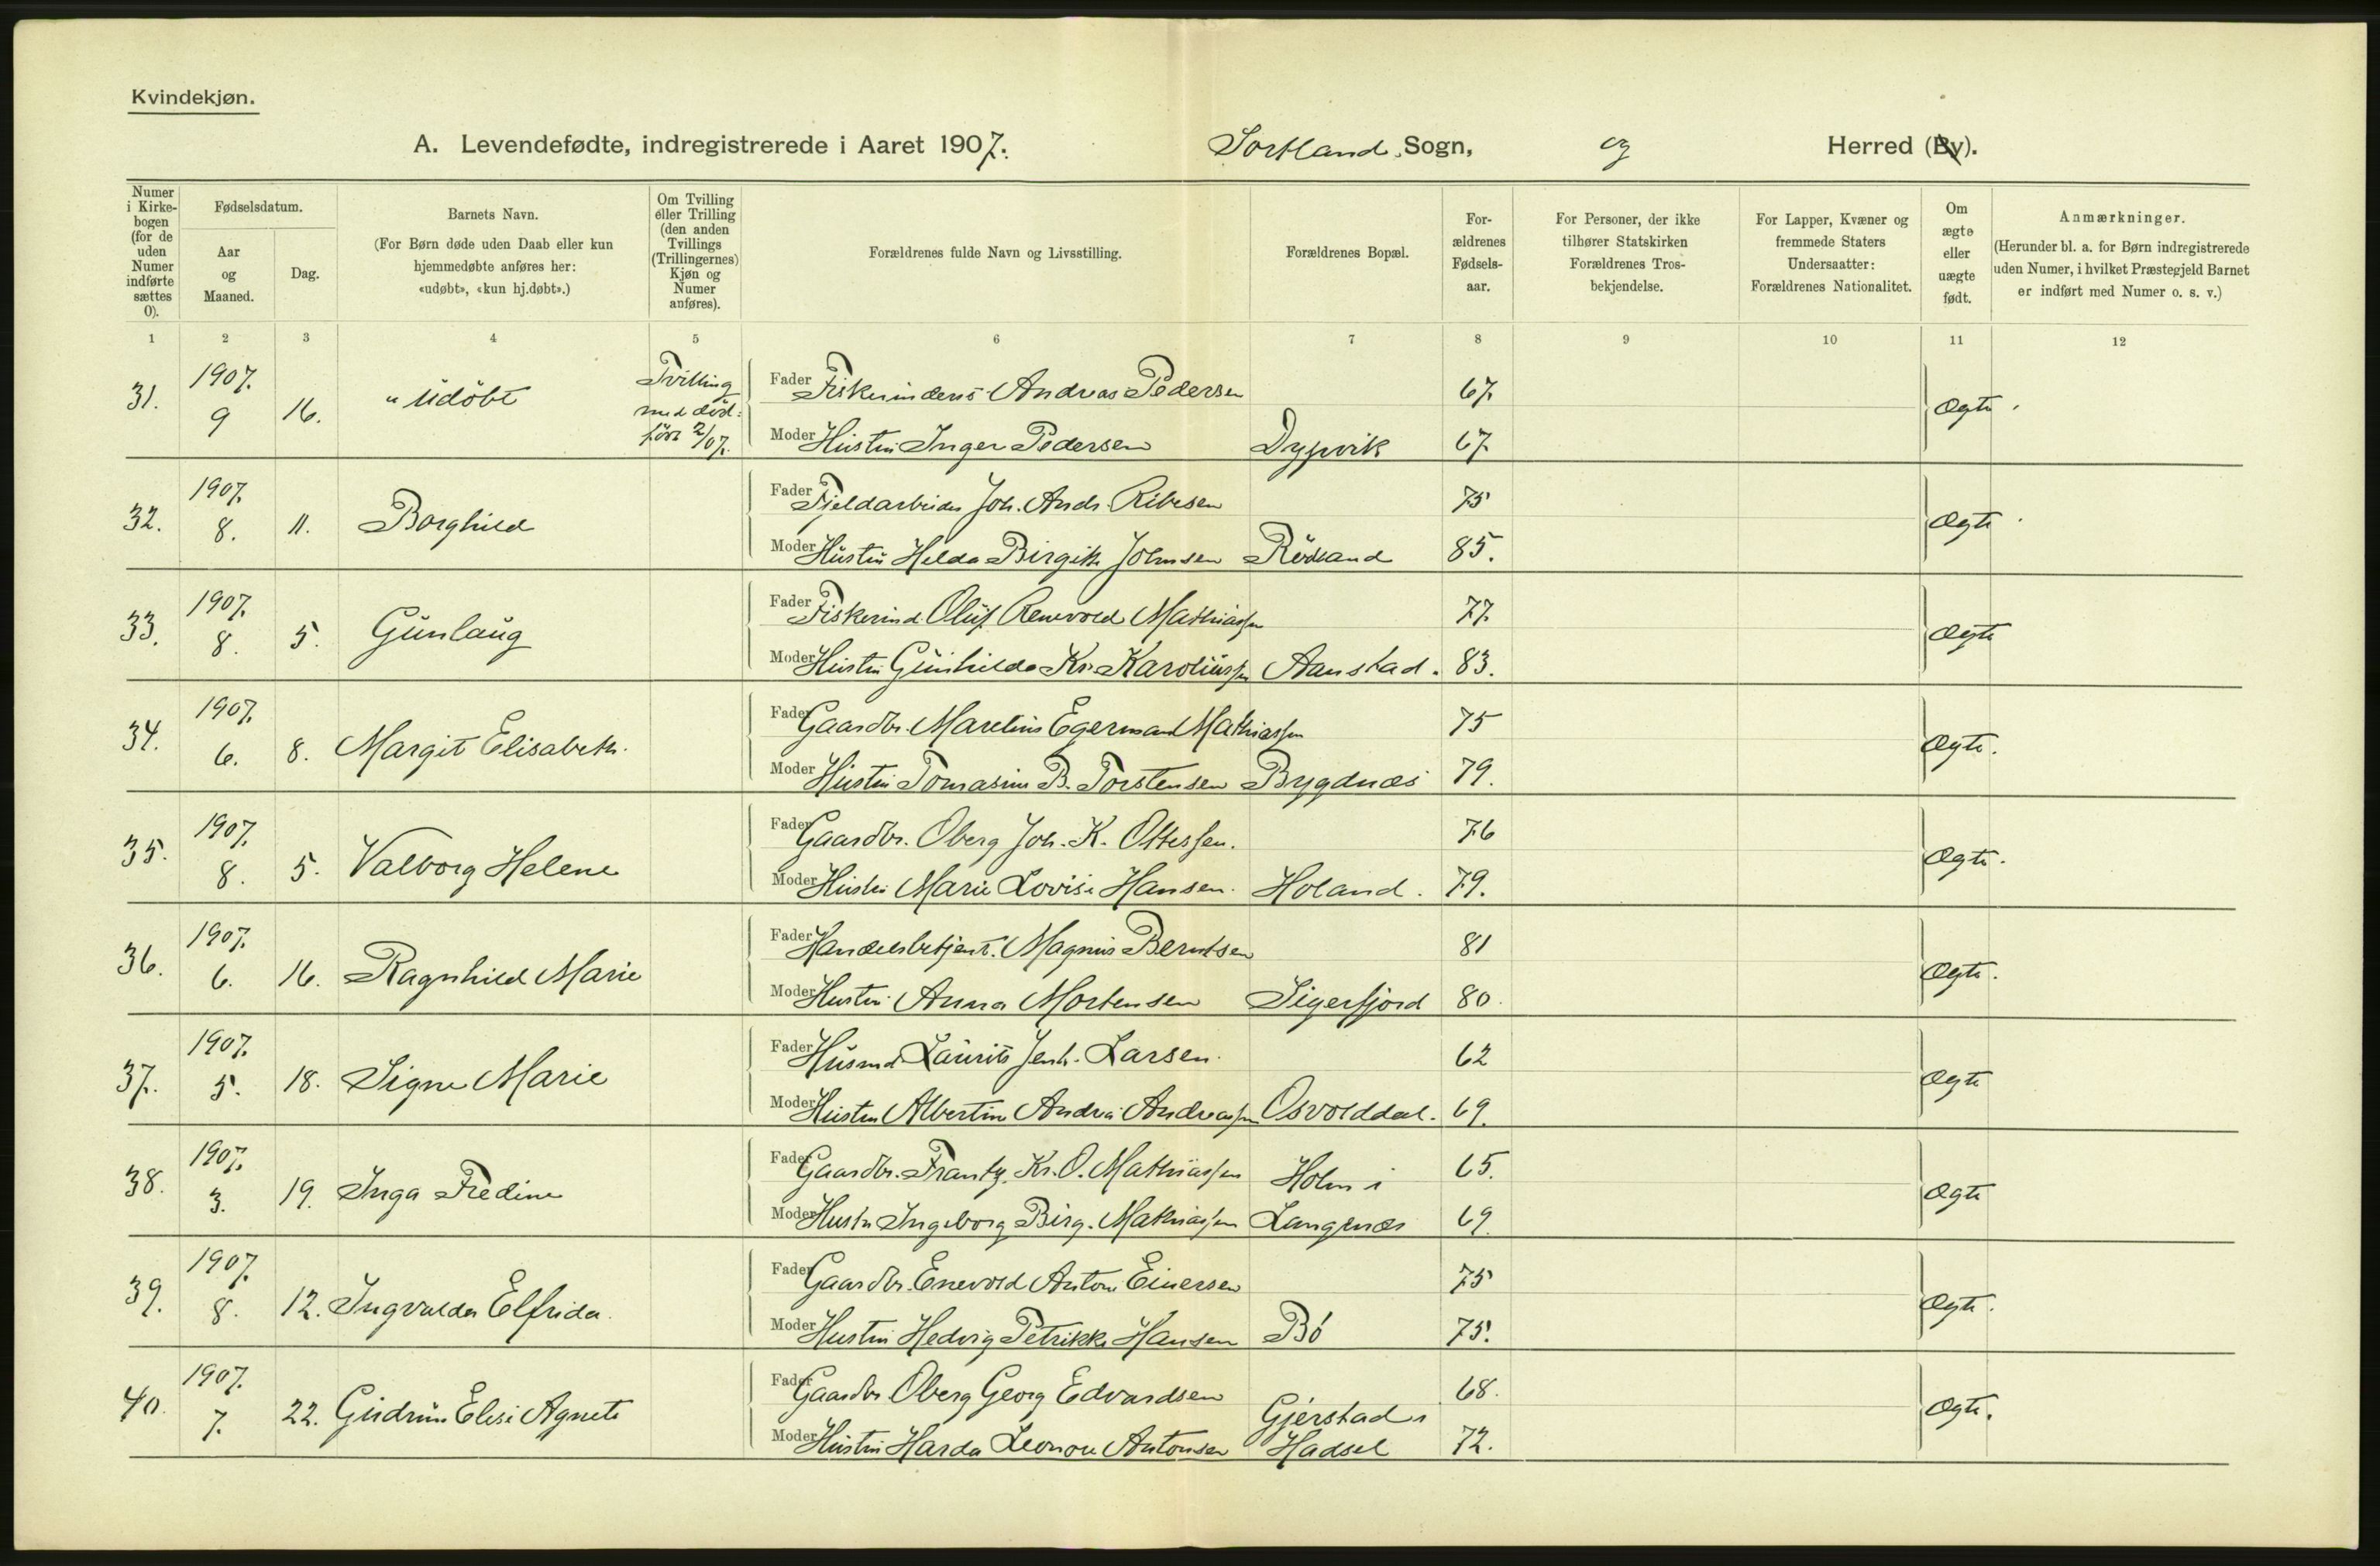 Kvindekjøn.
A. Levendefødte, indregistrerede i Aaret 1907. Sortland Sogn, og Herred (By).
Numer i Kirkebogen (for de uden Numer indførte sættes 0).
Fødselsdatum.
Aar og Maaned.
Dag.
Barnets Navn.
(For Børn døde uden Daab eller kun hjemmedøbte anføres her: «udøbt», «kun hj.døbt».)
Om Tvilling eller Trilling (den anden Tvillings (Trillingernes) Kjøn og Numer anføres).
Forældrenes fulde Navn og Livsstilling.
Forældrenes Bopæl.
Forældrenes Fødselsaar.
For Personer, der ikke tilhører Statskirken Forældrenes Trosbekjendelse.
For Lapper, Kvæner og fremmede Staters Undersaatter: Forældrenes Nationalitet.
Om ægte eller uægte født.
Anmærkninger.
(Herunder bl. a. for Børn indregistrerede uden Numer, i hvilket Præstegjeld Barnet er indført med Numer o. s. v.)
1 2 3 4 5 6 7 8 9 10 11 12
31. 1907. 9 16. "Udöbt Tvilling med död: 2/07. Fader Andreas Pedersen 67. Ægte
Moder Hustru Inger Pedersen Dypvik 67.
32. 1907. 8. 11. Borghild Fader Fjeldarbeider Joh. Andr. Ribesen 75 Ægte
Moder Hustru Helda Birgitte Johnsen Rödsand 85.
33. 1907. 8. 5. Gunlaug Fader Fiskerind. Oluf Renvold Mathiassen 77. Ægte
Moder Hustru Gunhilda Kr. Karoliussen Aanstad. 83.
34. 1907. 6. 8. Margit Elisabeth. Fader Gaardbr. Marelius Egerman Mathiassen 75 Ægte.
Moder Hustru Tomasine B. Torstensen Bygdnæs 79.
35. 1907. 8. 5. Valborg Helene Fader Gaardbr. Oberg Joh. K. Ottessen. 76 Ægte.
Moder Hustru Marie Lovise Hansen. Holand. 79.
36. 1907. 6. 16. Ragnhild Marie Fader Handelsbetjent. Magnus Berntsen 81 Ægte.
Moder Hustru Anna Mortensen Sigerfjord 80.
37. 1907. 5. 18. Signe Marie Fader Husmd. Laurits Jenh. Larsen. 62 Ægte
Moder Hustru Albertine Andrea Andreassen Osvolddal. 69.
38. 1907. 3. 19. Inga Fredine Fader Gaardbr. Frantz. Kr. O. Mathiassen Holm i 65. Ægte
Moder Hustr Ingeborg Birg. Mathiassen Langenæs 69.
39. 1907. 8. 12. Ingvalda Elfrida. Fader Gaardbr. Enevold Anton Einersen 75 Ægte.
Moder Hustru Hedvig Petrikke Hansen Bö 75.
40. 1907. 7. 22. Gudrun Elise Agnete Fader Gaardbr Oberg Georg Edvardsen 68. Ægte.
Gjerstad i
Moder Hustru Harda Leonore Antonsen Hadsel 72.